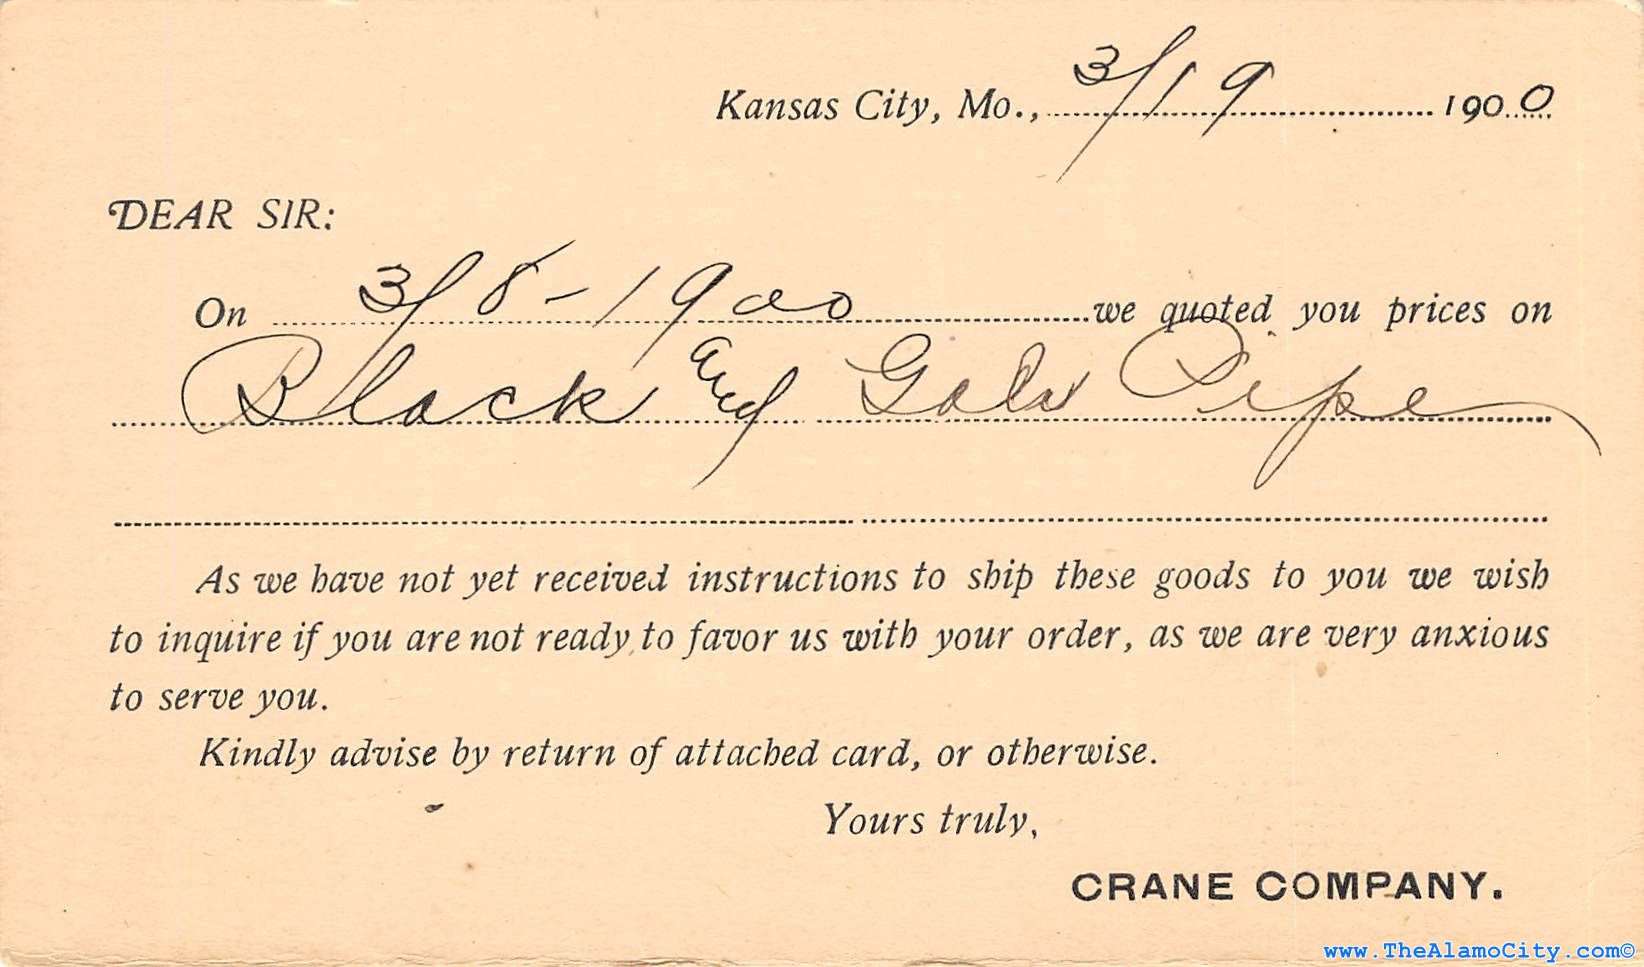 Kansas City, Mo., 3/19 1900
DEAR SIR:
On 3/8-1900 we quoted you prices on
Black and Galv Pipe
As we have not yet received instructions to ship these goods to you we wish
to inquire if you are not ready to favor us with your order, as we are very anxious
to serve you.
Kindly advise by return of attached card, or otherwise.
Yours truly,
CRANE COMPANY.
www.TheAlamoCity.com©